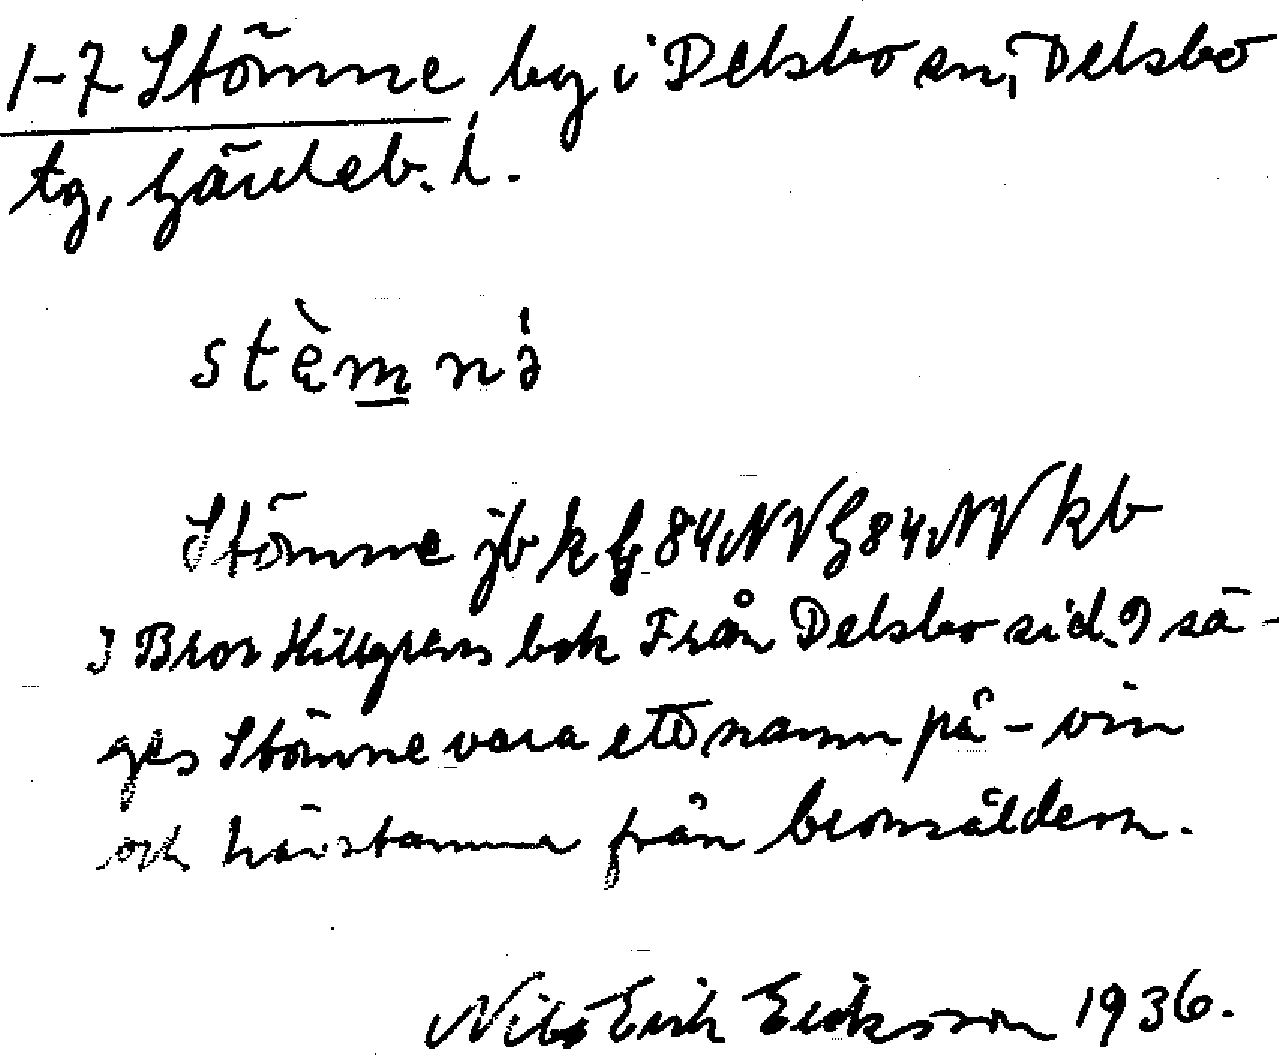 1-7 Stömne by i Delsbo sn, Delsbo
tg, Gävleb. l.
stę̀m̲nə
Stömne jb k 84 NV 84 NV kb
I Bror Hillgrens bok Från Delsbo sid. 9 sä-
ges Stömne vara ett namn på - vin
och härstamma från bronsåldern.
Nils Erik Eriksson 1936.